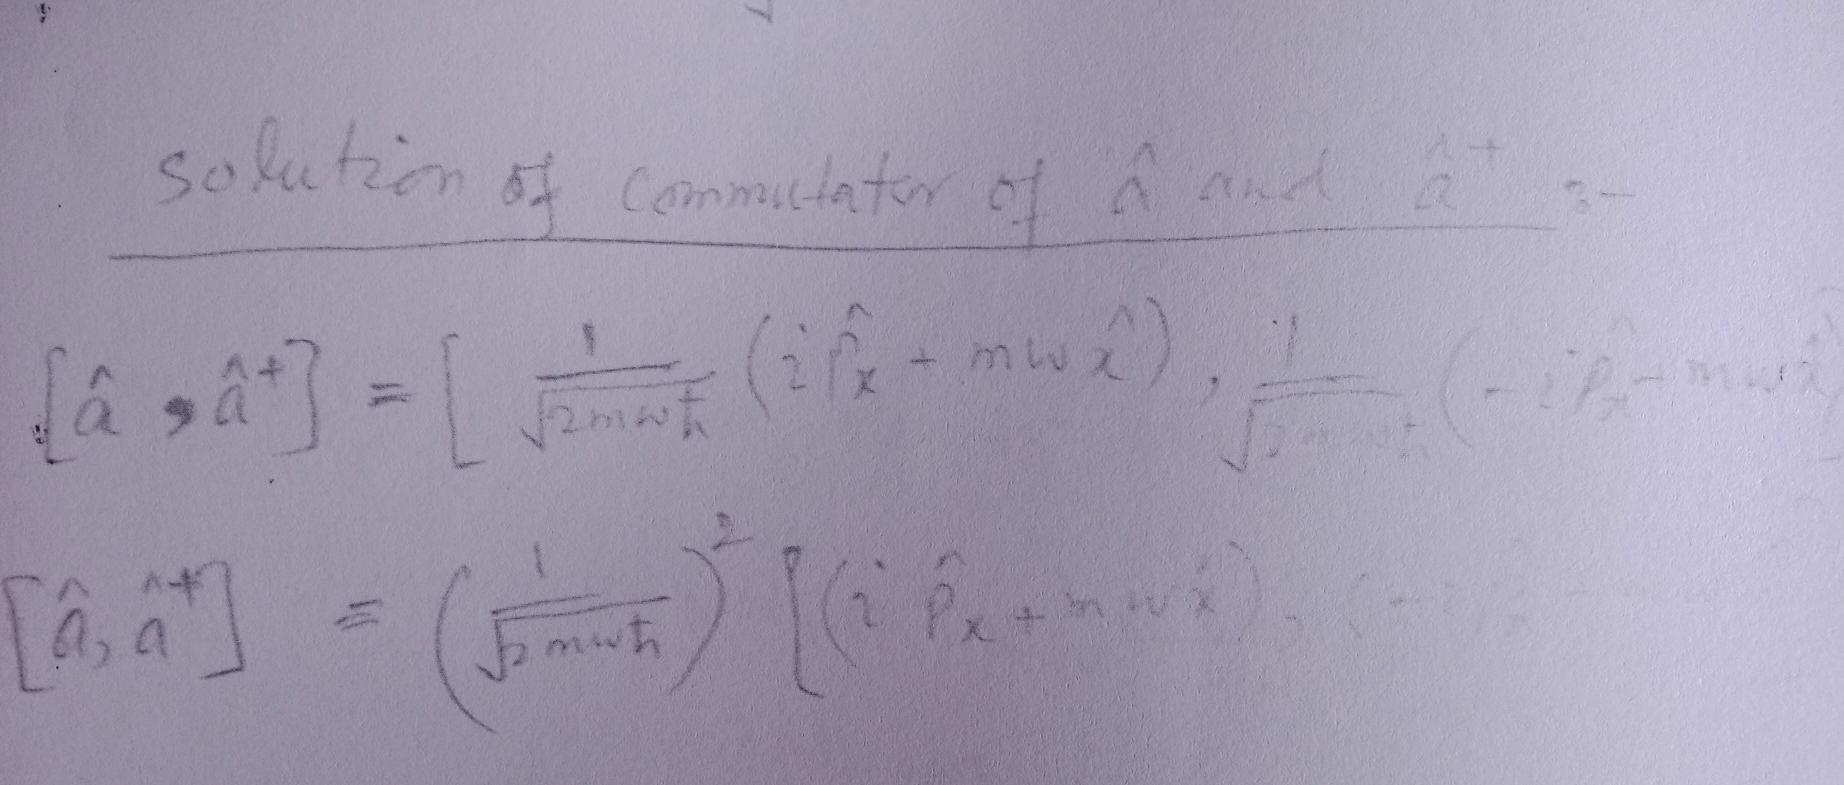 solution of commutator of â and â⁺ :-
[â , â⁺] = [ 1/√2mωħ (i p̂ₓ + mω x̂) , 1/√2mωħ (- i p̂ₓ - mω x̂)
[â, â⁺] = (1/√2mωħ)² [(i p̂ₓ + mω x̂), (-